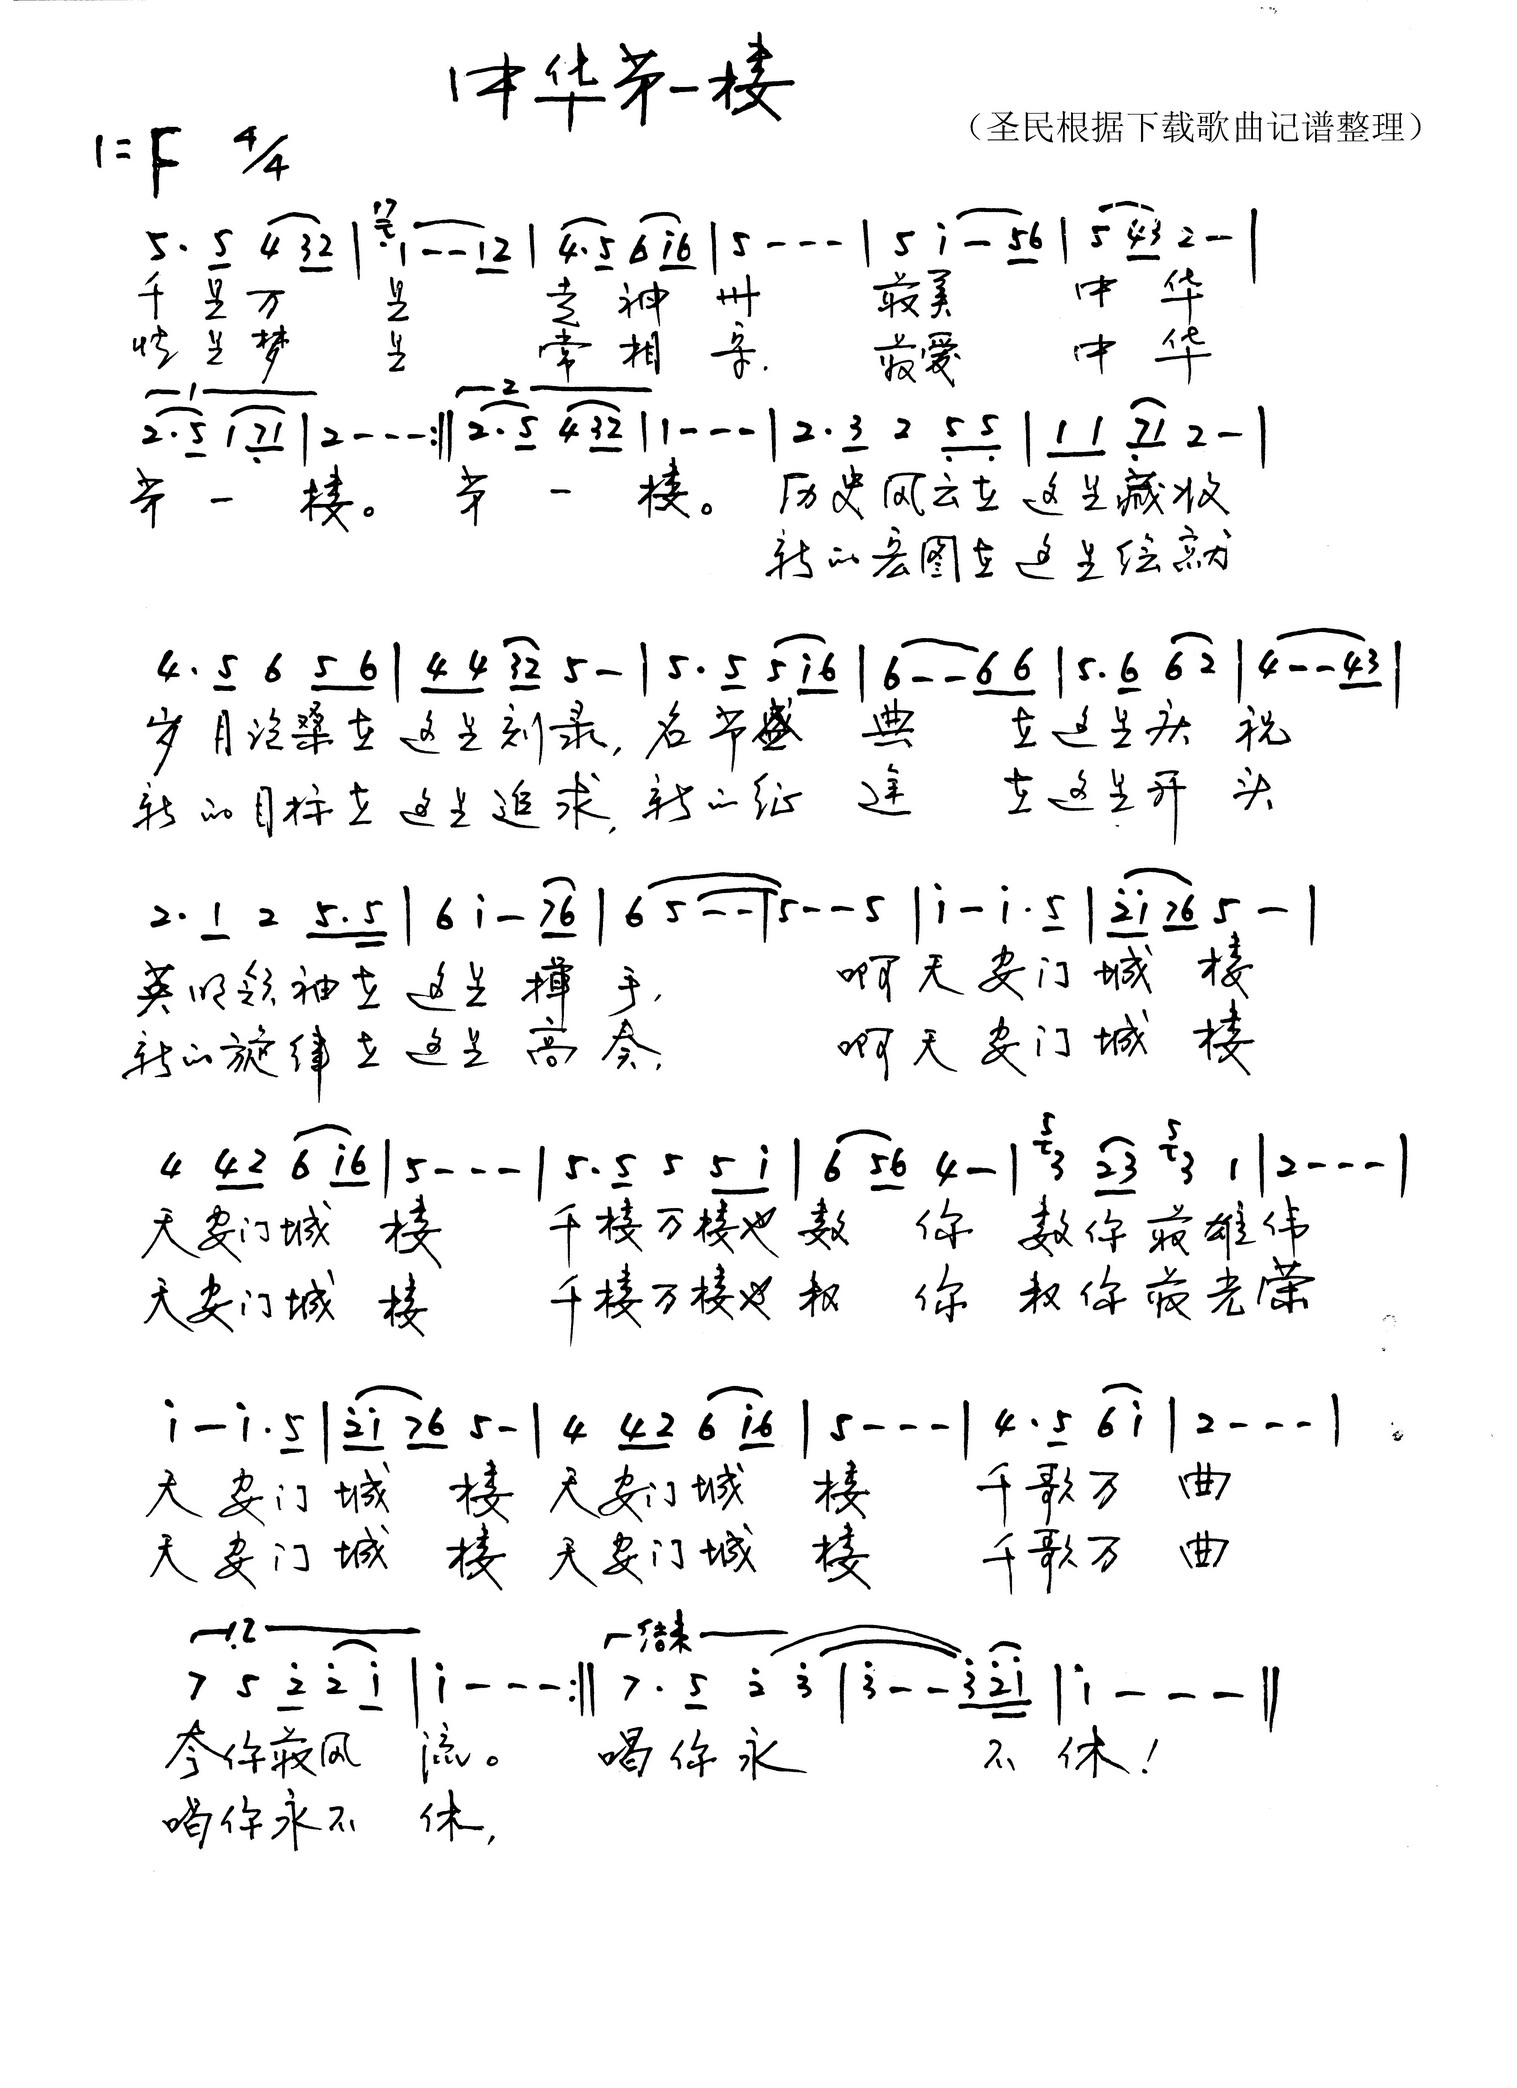 中华第一楼
（圣民根据下载歌曲记谱整理）
1=F 4/4
5· 5 4 32 | 1--12 | 4·5 6 i6 | 5--- | 5 i-56 | 5 43 2- |
千里万里 走神州 最美 中华
情里梦里 常相守. 最爱 中华
1 2
2·5 1 71 | 2---:‖ 2·5 4 32 | 1--- | 2·3 2 55 | 11 71 2- |
第一楼。 第一楼。 历史风云在这里藏收
新的宏图在这里绘就
4·5 6 56 | 44 32 5- | 5·5 5 i6 | 6--66 | 5·6 62 | 4--43 |
岁月沧桑在这里刻录, 名节盛典 在这里庆祝
新的目标在这里追求, 新的征途 在这里开头
2·1 2 5·5 | 6 i-76 | 6 5-- | 5--5 | i-i·5 | 2i 76 5- |
英明领袖在这里挥手, 啊天安门城楼
新的旋律在这里高奏, 啊天安门城楼
4 42 6 i6 | 5--- | 5·5 5 5i | 6 56 4- | 5 3 23 5 3 1 | 2--- |
天安门城楼 千楼万楼也数你 数你最雄伟
天安门城楼 千楼万楼也数你 数你最光荣
i-i·5 | 2i 76 5- | 4 42 6 i6 | 5--- | 4·5 6i | 2--- |
天安门城楼 天安门城楼 千歌万曲
天安门城楼 天安门城楼 千歌万曲
1.2 结束
7 5 2 2 i | i---:‖ 7·5 2 3 | 3--3 2i | i---‖
夸你最风流。 唱你永 不休!
唱你永不休,